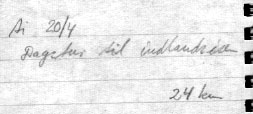 Ti 20/4
Dagstur til indlandsisen
24 km